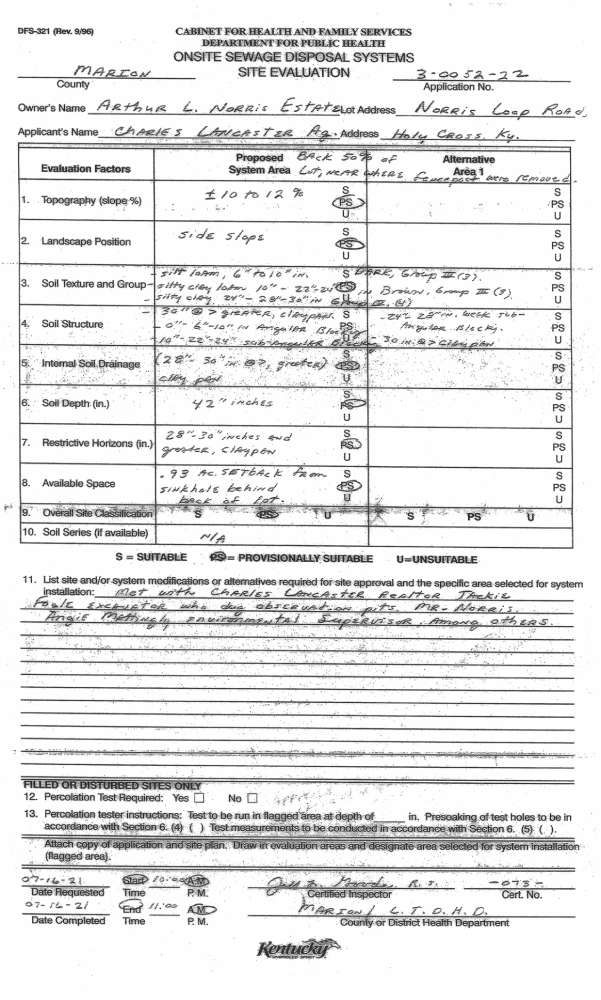 DFS-321 (Rev. 9/96)
CABINET FOR HEALTH AND FAMILY SERVICES
DEPARTMENT FOR PUBLIC HEALTH
ONSITE SEWAGE DISPOSAL SYSTEMS
MARION SITE EVALUATION 3-0052-22
County Application No.
Owner's Name Arthur L. Norris Estate Lot Address Norris Loop Road,
Applicant's Name Charles Lancaster Ag. Address Holy Cross, Ky.
Evaluation Factors Proposed System Area BACK 50% of Lot, near where fencepost were removed. Alternative Area 1
1. Topography (slope %) ± 10 to 12 % S PS U S PS U
2. Landscape Position Side Slope S PS U S PS U
3. Soil Texture and Group - silt loam, 6" to 10" in. DARK, Group III (3). S PS U S PS U
- silty clay loam 10" - 22"-24" in Brown, Group III (3).
- silty clay, 24" - 28"-30" in Group IV, (4)
- 30" @ > greater, claypan.
4. Soil Structure - 0" 6"-10" in Angular Blocky S PS U - 24"- 28" in. weak sub-Angular Blocky. S PS U
- 10"-22"-24" sub-Angular Blocky - 30 in. @ > claypan
5. Internal Soil Drainage (28"- 30" in @ >, greater) clay pan S PS U S PS U
6. Soil Depth (in.) 42" inches S PS U S PS U
7. Restrictive Horizons (in.) 28"-30" inches and greater, claypan S PS U S PS U
8. Available Space .93 Ac. SETback from sinkhole behind back of lot. S PS U S PS U
9. Overall Site Classification S PS U S PS U
10. Soil Series (if available) N/A
S = SUITABLE PS = PROVISIONALLY SUITABLE U=UNSUITABLE
11. List site and/or system modifications or alternatives required for site approval and the specific area selected for system
installation: Met with Charles Lancaster Realtor Jackie
Fogle excavator who dug observation pits. Mr. Norris.
Angie Mattingly environmental Supervisor. Among others.
FILLED OR DISTURBED SITES ONLY
12. Percolation Test Required: Yes No
13. Percolation tester instructions: Test to be run in flagged area at depth of in. Presoaking of test holes to be in
accordance with Section 6. (4) ( ) Test measurements to be conducted in accordance with Section 6. (5) ( ).
Attach copy of application and site plan. Draw in evaluation areas and designate area selected for system installation
(flagged area).
07-16-21 Start 10:00 A.M. R.S. -073-
Date Requested Time P.M. Certified Inspector Cert. No.
07-16-21 End 11:00 A.M. MARION / L.T.D.H.D.
Date Completed Time P.M. County or District Health Department
Kentucky
UNBRIDLED SPIRIT